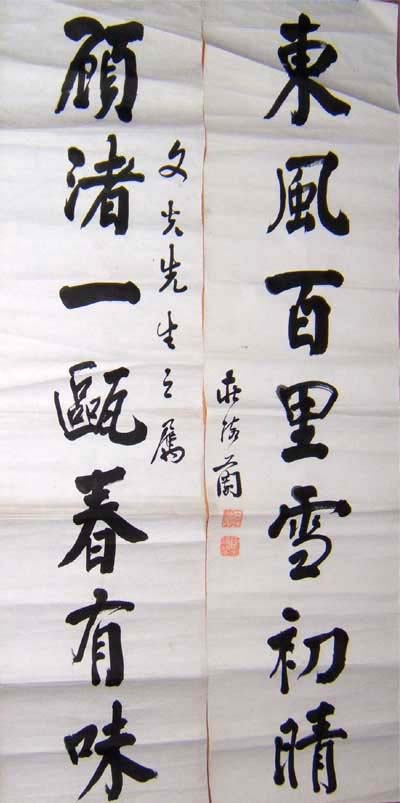 東風百里雪初晴
莊陔蘭
文先生之屬
顧渚一甌春有味